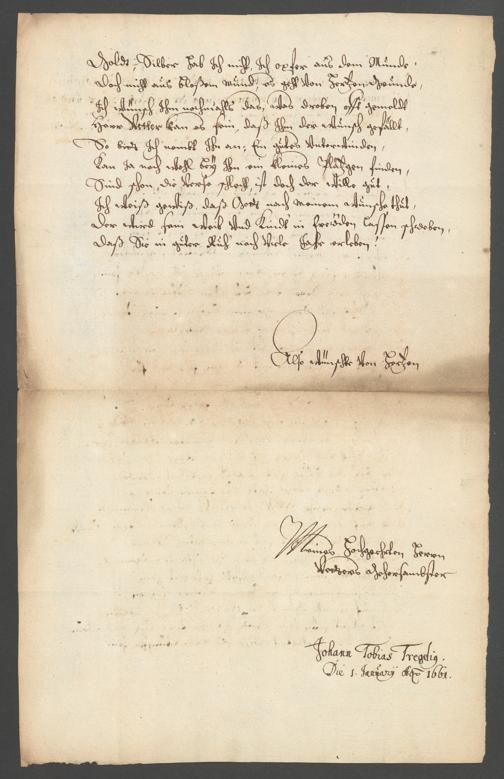 Goldt, Silber hab Ich nicht, Ich opfer aus dem Munde,
Doch nicht aus bloßem mund, es geht von Hertzen Grunde,
Ich wünsch Ihm nochmahls das, was droben ist gemeldt
Herr Vetter kan es sein, daß Ihm der wunsch gefällt,
So biet Ich nembt Ihn an, Ein gutes
Kan Ja noch wohl bey Ihm ein kleines Plätzgen finden,
Sind schon die Verse schlecht, ist doch der Wille gut,
Ich weiß gewiß, daß Gott nach meinem Wunsche thut,
Der wird sein Weib Und Kindt in freüden lassen schweben,
Daß Sie in guter Ruh noch Viele Jahr erleben!
Also wünscht Von Hertzen
Meines Hochgeehrten Herrn
Vetters Gehorsambster
Johann Tobias
Die 1. January Aō 1661.